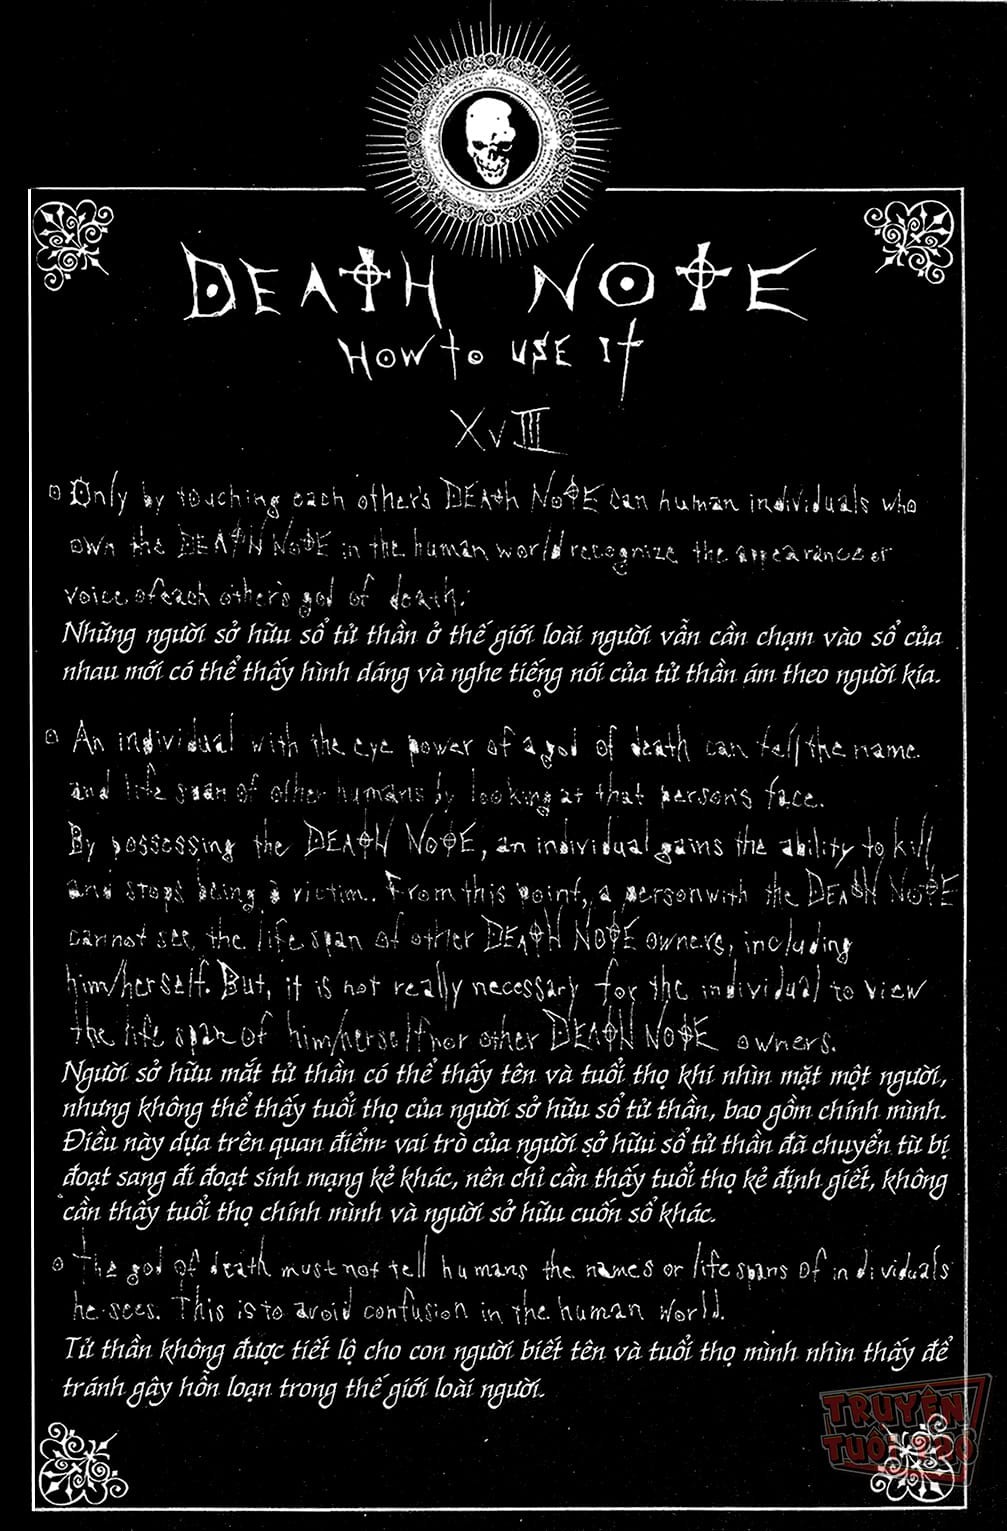 DEATH NOTE
HOW to USE It
XVIII
Only by touching each other's DEATH NOTE can human individuals who
own the DEATH NOTE in the human world recognize the appearance or
voice of each other's god of death.
Những người sở hữu sổ tử thần ở thế giới loài người vẫn cần chạm vào sổ của
nhau mới có thể thấy hình dáng và nghe tiếng nói của tử thần ám theo người kia.
An individual with the eye power of a god of death can tell the name
and life span of other humans by looking at that person's face.
By possessing the DEATH NOTE, an individual gains the ability to kill
and stops being a victim. From this point, a person with the DEATH NOTE
cannot see the life span of other DEATH NOTE owners, including
him/herself. But, it is not really necessary for the individual to view
the life span of him/herself nor other DEATH NOTE owners.
Người sở hữu mắt tử thần có thể thấy tên và tuổi thọ khi nhìn mặt một người,
nhưng không thể thấy tuổi thọ của người sở hữu sổ tử thần, bao gồm chính mình.
Điều này dựa trên quan điểm: vai trò của người sở hữu sổ tử thần đã chuyển từ bị
đoạt sang đi đoạt sinh mạng kẻ khác, nên chỉ cần thấy tuổi thọ kẻ định giết, không
cần thấy tuổi thọ chính mình và người sở hữu cuốn sổ khác.
The god of death must not tell humans the names or life spans of individuals
he sees. This is to avoid confusion in the human world.
Tử thần không được tiết lộ cho con người biết tên và tuổi thọ mình nhìn thấy để
tránh gây hỗn loạn trong thế giới loài người.
TRUYỆN
TUỔI